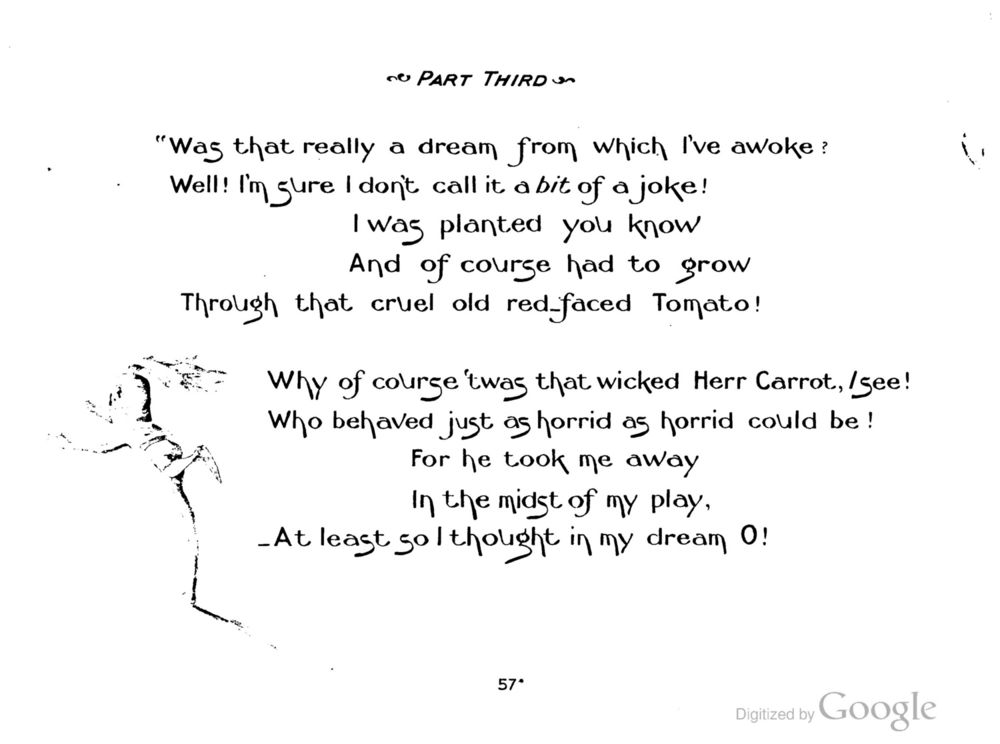 PART THIRD
"Was that really a dream from which I've awoke?
Well! I'm sure I don't call it a bit of a joke!
I was planted you know
And of course had to grow
Through that cruel old red-faced Tomato!
Why of course 'twas that wicked Herr Carrot, I see!
Who behaved just as horrid as horrid could be!
For he took me away
In the midst of my play,
–At least so I thought in my dream O!
57
Digitized by Google